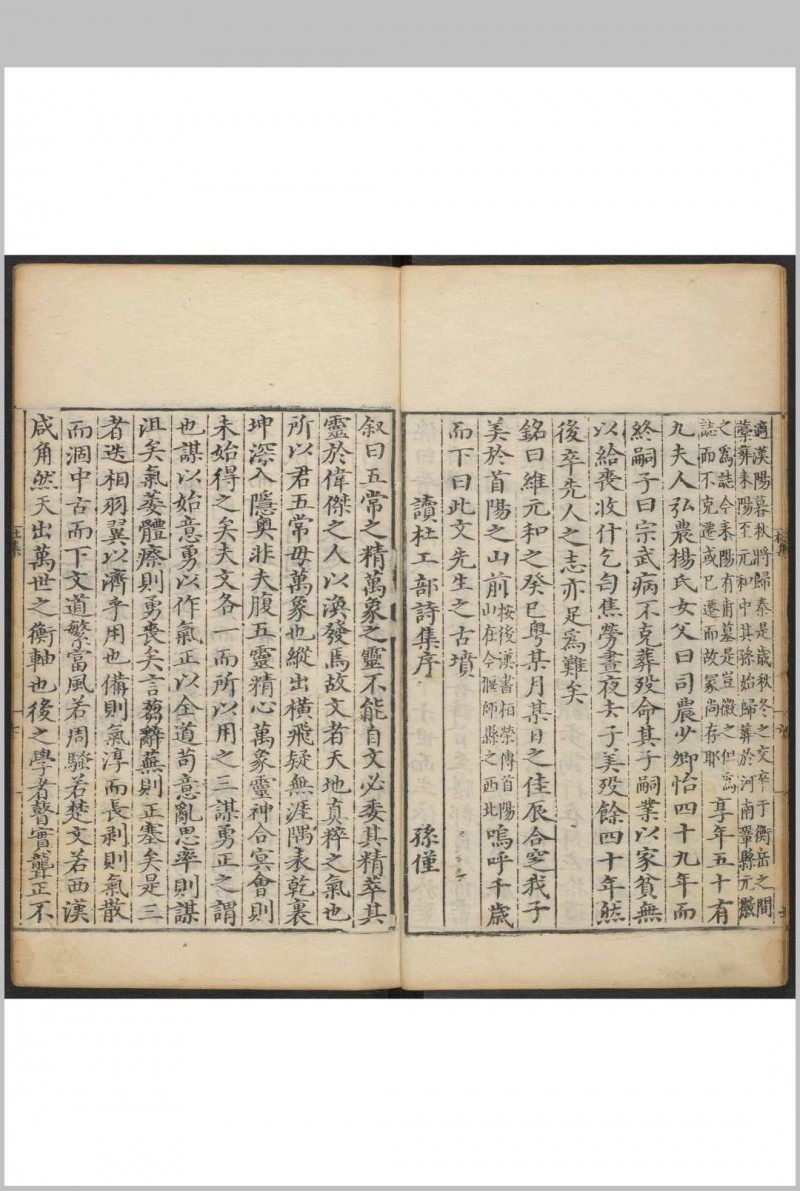 適漢陽暮秋將歸秦是歳秋冬之交卒于衡岳之間
藁葬耒陽至元和中其孫始歸葬於河南鞏縣元微
之爲誌今耒陽有甫墓是豈微之但爲
誌而不克遷或已遷而故冢尚存耶
享年五十有
九夫人弘農楊氏女父曰司農少卿怡四十九年而
終嗣子曰宗武病不克葬歿命其子嗣業以家貧無
以給喪收什乞匄焦勞晝夜去子美歿餘四十年然
後卒先人之志亦足爲難矣
銘曰維元和之癸巳粵某月某日之佳辰合窆我子
美於首陽之山前
按後漢書桓榮傳首陽
山在今偃師縣之西北
嗚呼千歳
而下曰此文先生之古墳
讀杜工部詩集序 孫僅
叙曰五常之精萬象之靈不能自文必委其精萃其
靈於偉傑之人以渙發焉故文者天地真粹之氣也
所以君五常毋萬象也縱出橫飛疑無涯隅表乾裏
坤深入隱奥非夫腹五靈精心萬象靈神合冥會則
未始得之矣夫文各一而所以用之三謀勇正之謂
也謀以始意勇以作氣正以全道苟意亂思率則謀
沮矣氣萎體瘵則勇喪矣言蒭辭蕪則正塞矣是三
者迭相羽翼以濟乎用也備則氣淳而長剥則氣散
而涸中古而下文道繁富風若周騷若楚文若西漢
咸角然天出萬世之衡軸也後之學者瞽實聾正不